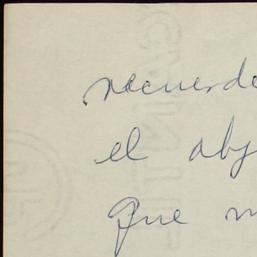 recuerde
el obj
que m